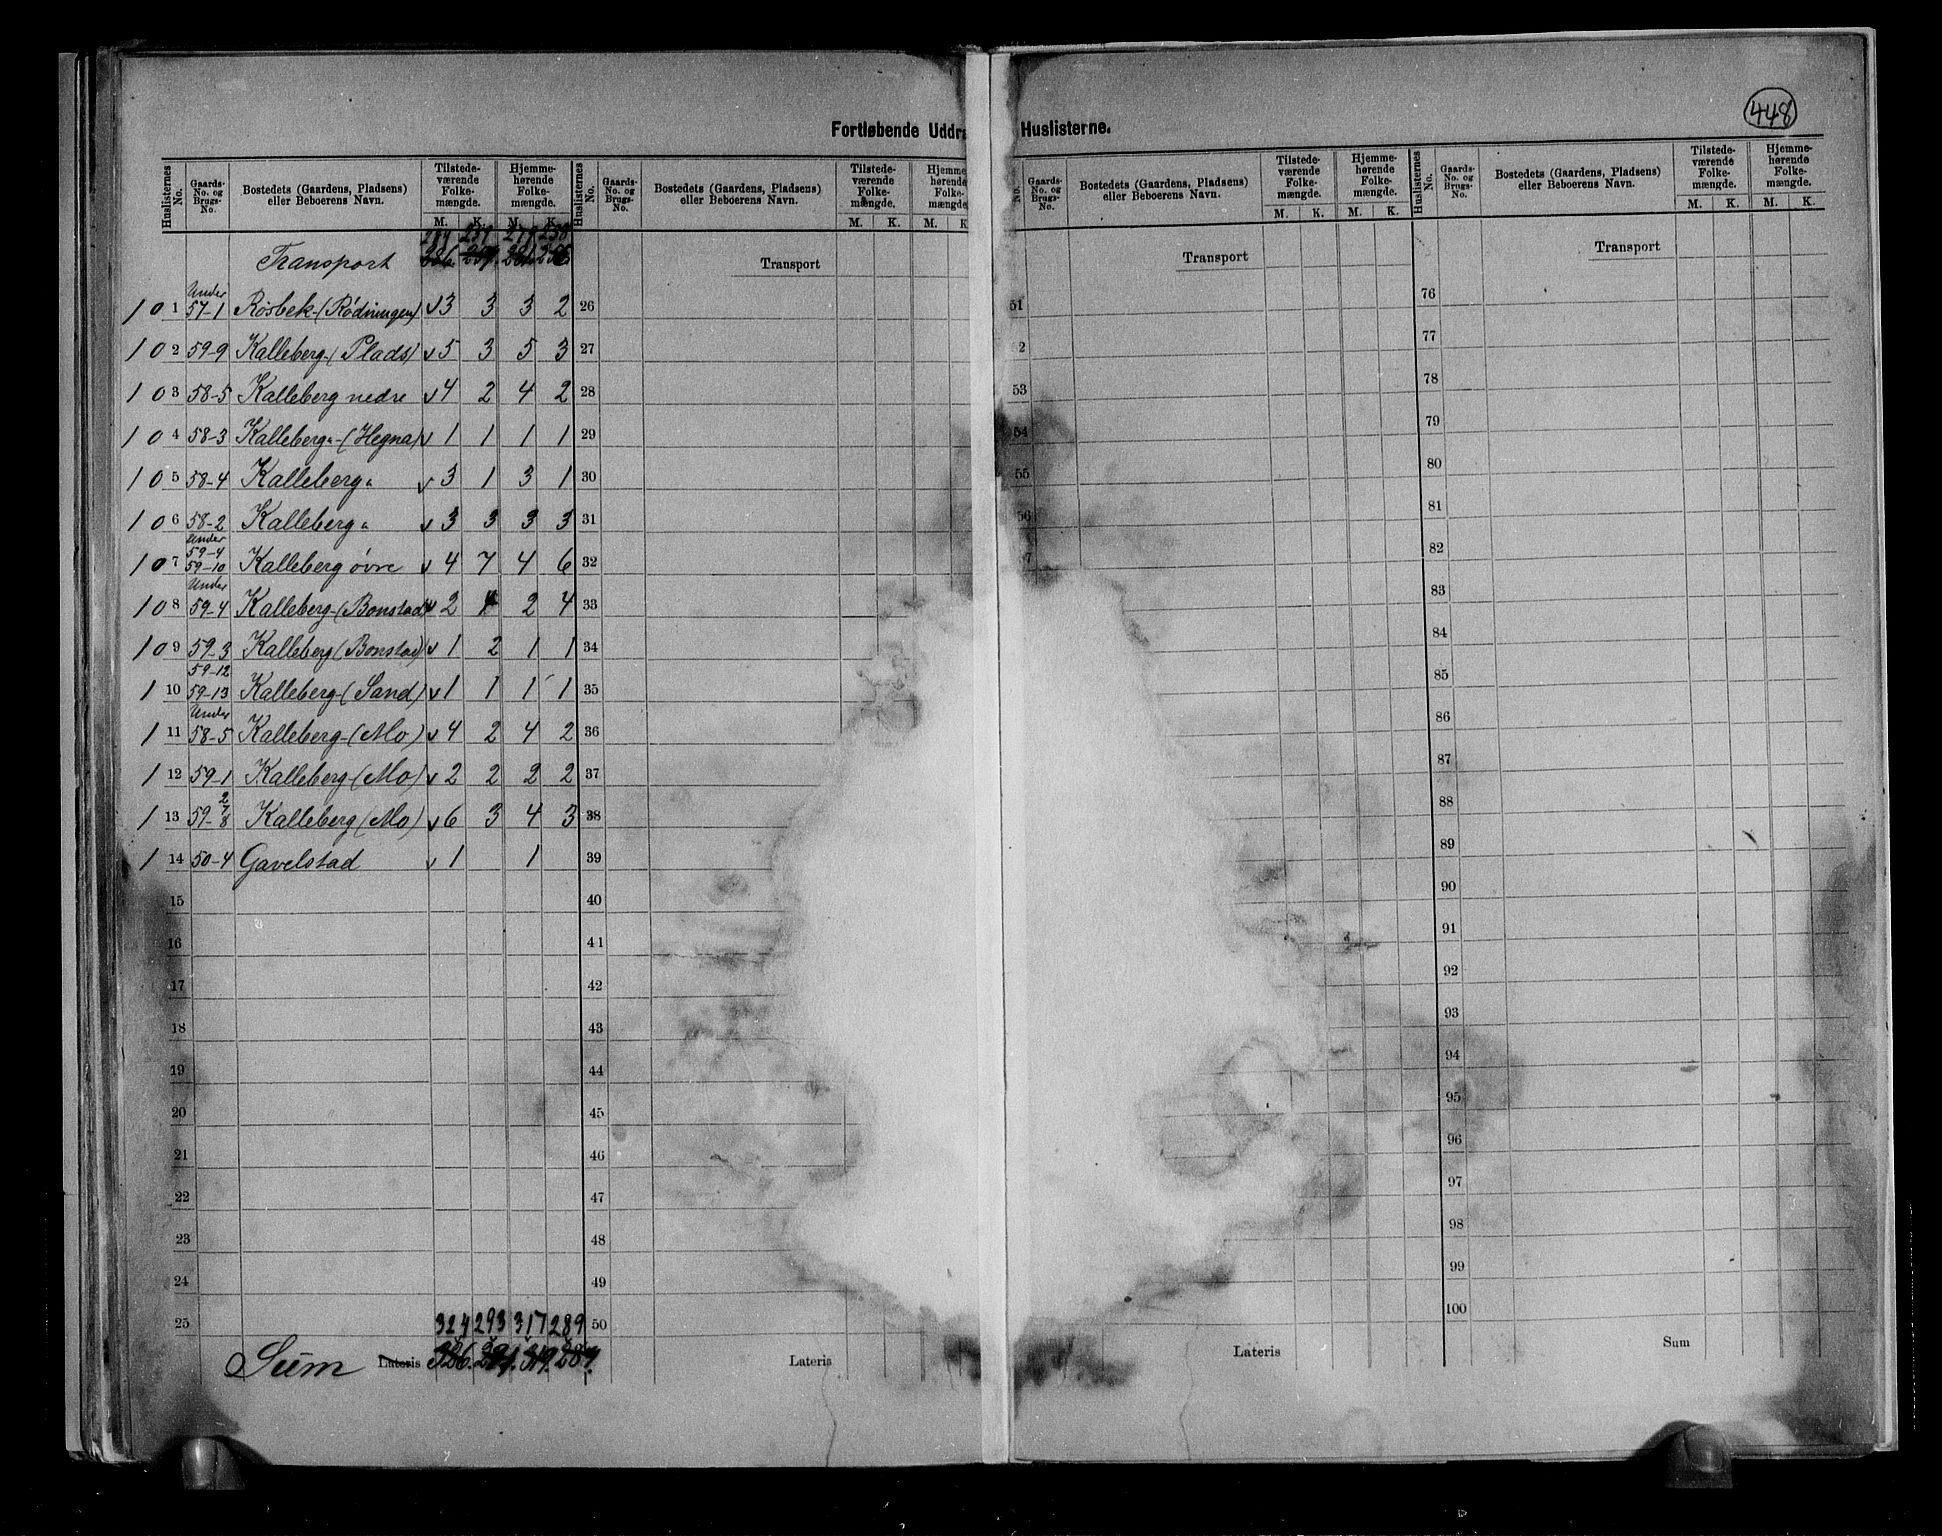 448
Fortløbende Uddra Huslisterne.
Huslisternes No. Gaards-No. og Brugs-No. Bostedets (Gaardens, Pladsens) eller Beboerens Navn. Tilstede-værende Folke-mængde. Hjemme-hørende Folke-mængde.
M. K. M. K.
Transport
101 Under 57-1 Rösbek-(Rödningen) 3 3 3 2
102 59-9 Kalleberg-(Plads) 5 3 5 3
103 58-5 Kalleberg nedre 4 2 4 2
104 58-3 Kalleberg " -(Hegna) 1 1 1 1
105 58-4 Kalleberg " 3 1 3 1
106 58-2 Kalleberg " 3 3 3 3
107 Under 59-4 59-10 Kalleberg övre 4 7 4 6
108 Under 59-4 Kalleberg-(Bonstad) 2 4 2 4
109 59-3 Kalleberg (Bonstad) 1 2 1 1
110 59-12 59-13 Kalleberg-(Sand) 1 1 1 1
111 Under 58-5 Kalleberg-(Mo) 4 2 4 2
112 59-1 Kalleberg-(Mo) 2 2 2 2
113 59-2 7 8 Kalleberg (Mo) 6 3 4 3
114 50-4 Gavelstad 1 1
15
16
17
18
19
20
21
22
23
24
25
324 293 317 289
Sum Lateris
Huslisternes No. Gaards-No. og Brugs-No. Bostedets (Gaardens, Pladsens) eller Beboerens Navn. Tilstede-værende Folke-mængde. Hjemme-hørende Folke-mængde.
M. K. M. K
Transport
26
27
28
29
30
31
32
33
34
35
36
37
38
39
40
41
42
43
44
45
46
47
48
49
50
Lateris
No. Gaards-No. og Brugs-No. Bostedets (Gaardens, Pladsens) eller Beboerens Navn. Tilstede-værende Folke-mængde. Hjemme-hørende Folke-mængde.
M. K. M. K.
Transport
51
2
53
54
55
56
7
Lateris
Huslisternes No. Gaards-No. og Brugs-No. Bostedets (Gaardens, Pladsens) eller Beboerens Navn. Tilstede-værende Folke-mængde. Hjemme-hørende Folke-mængde.
M. K. M. K.
Transport
76
77
78
79
80
81
82
83
84
85
86
87
88
89
90
91
92
93
94
95
96
97
98
99
100
Sum